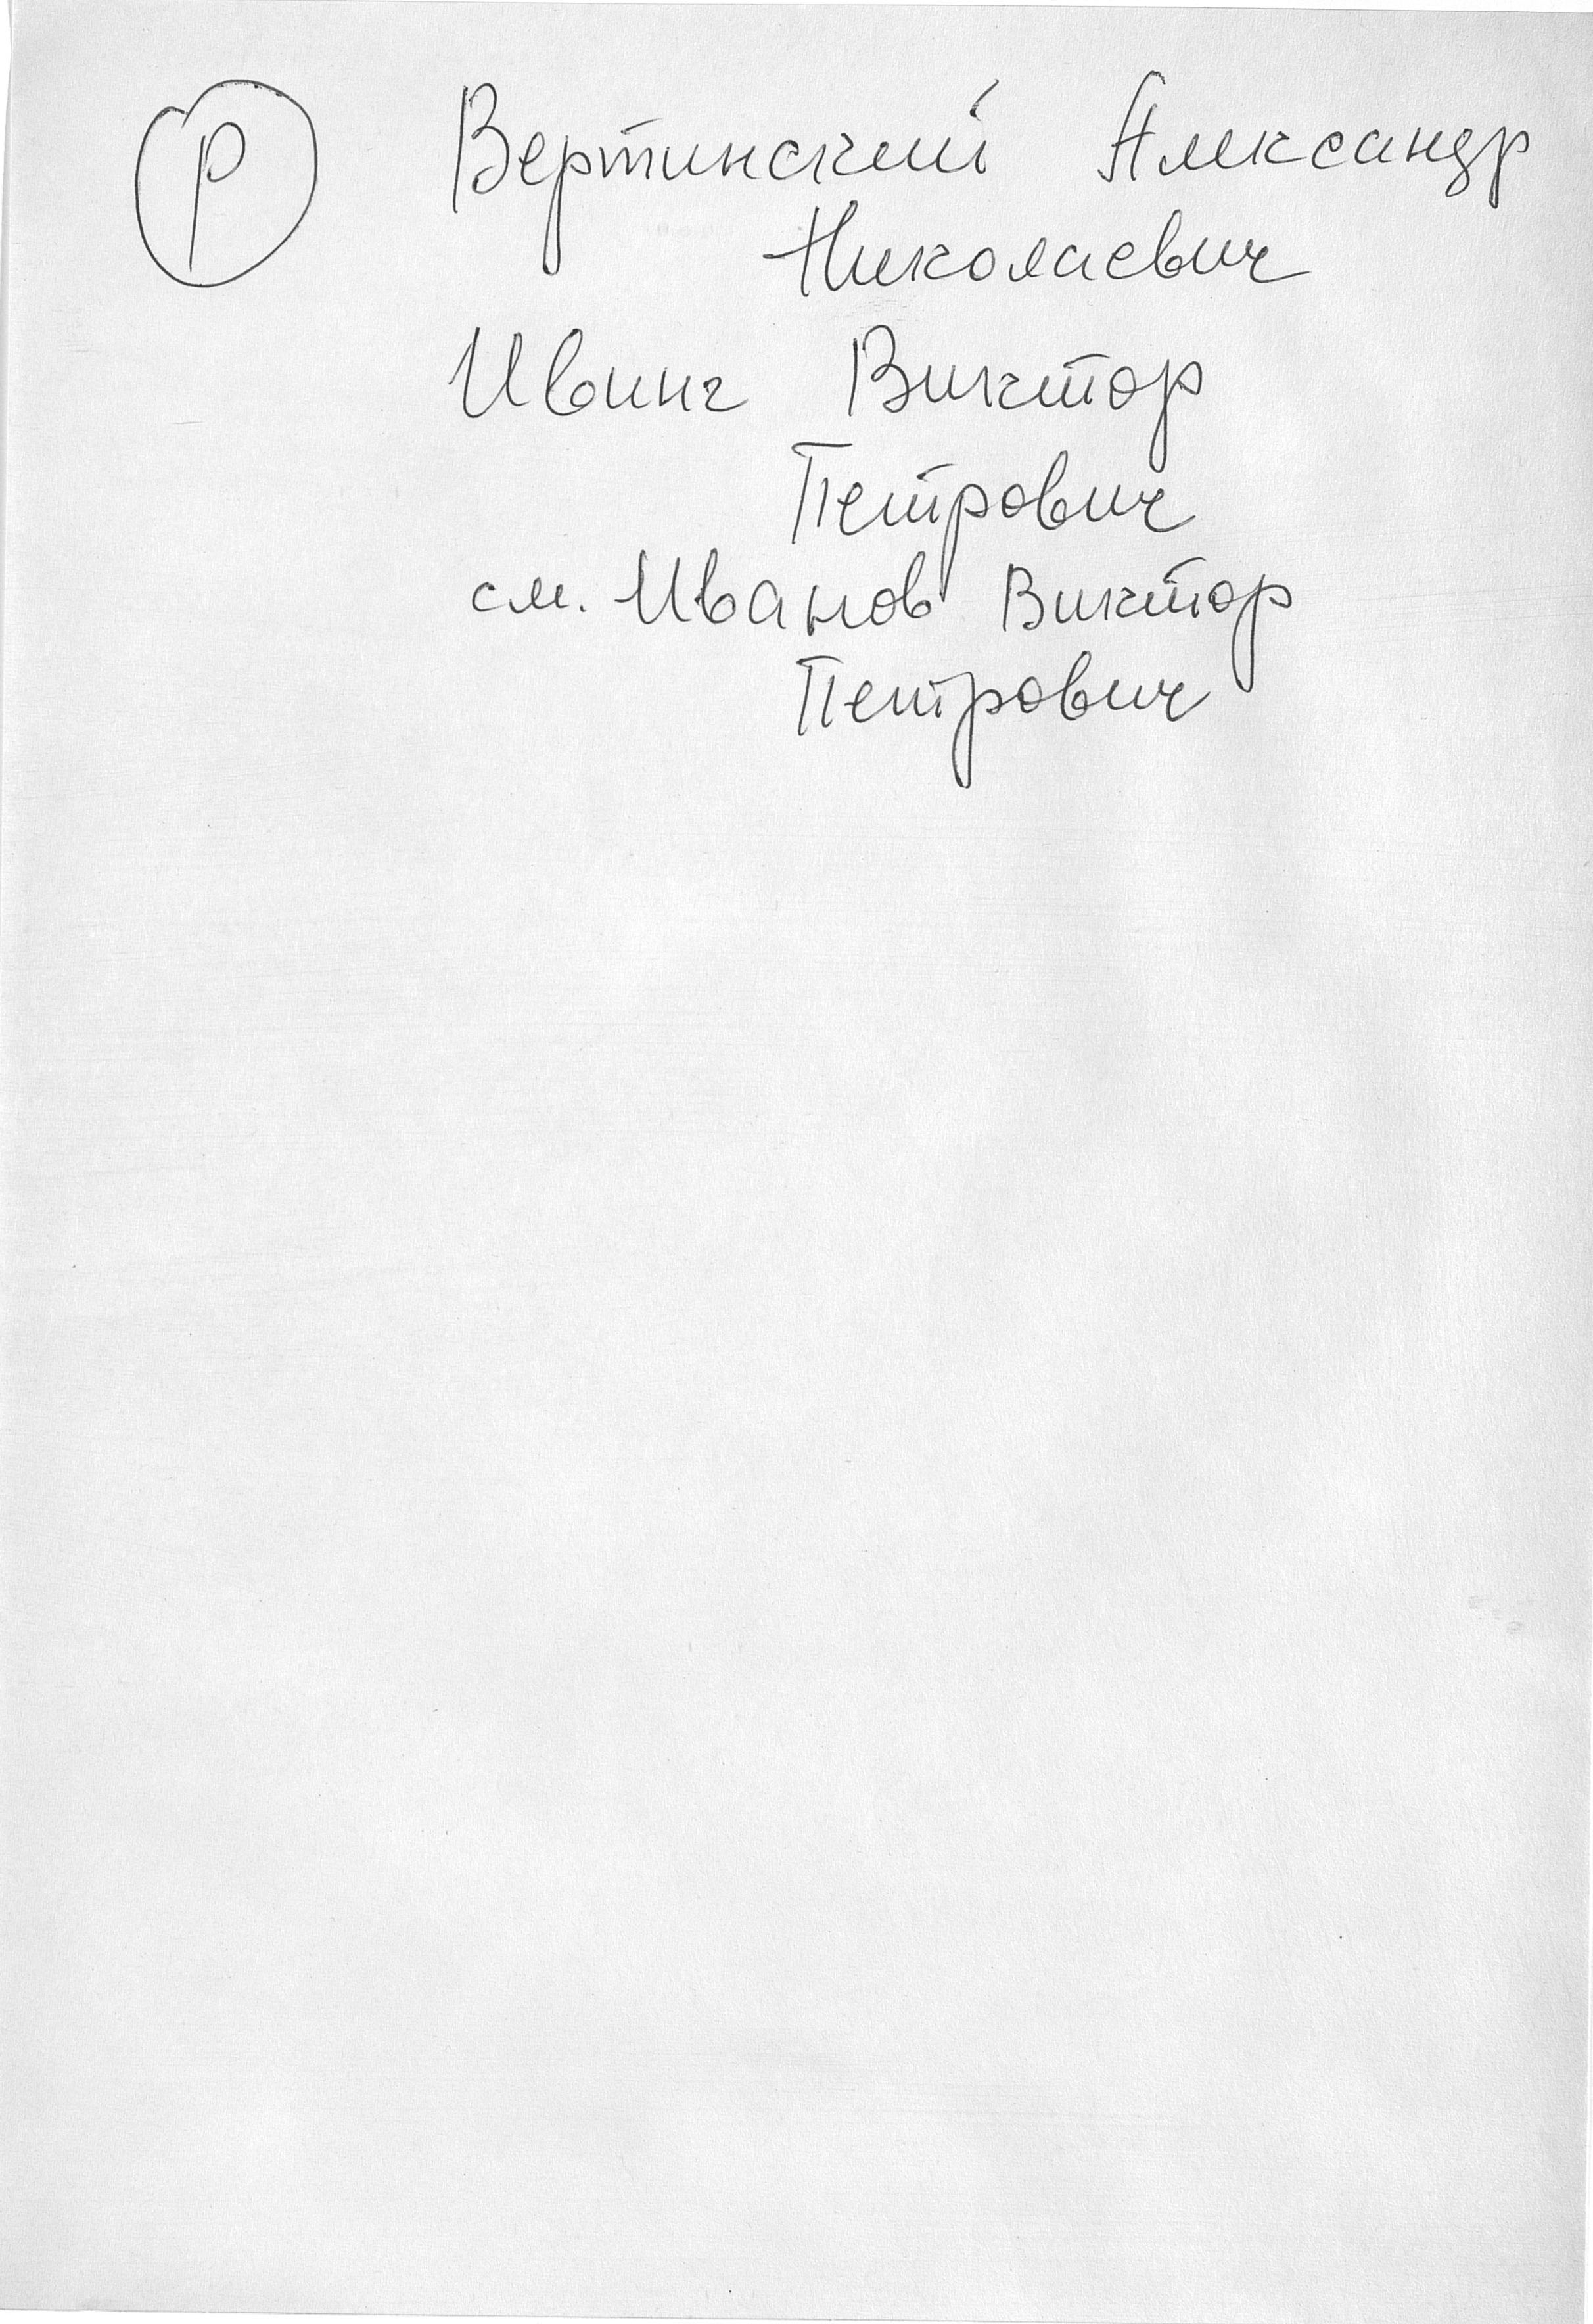 Р Вертинский Александр
Николаевич
Ивинг Виктор
Петрович
см. Иванов Виктор
Петрович